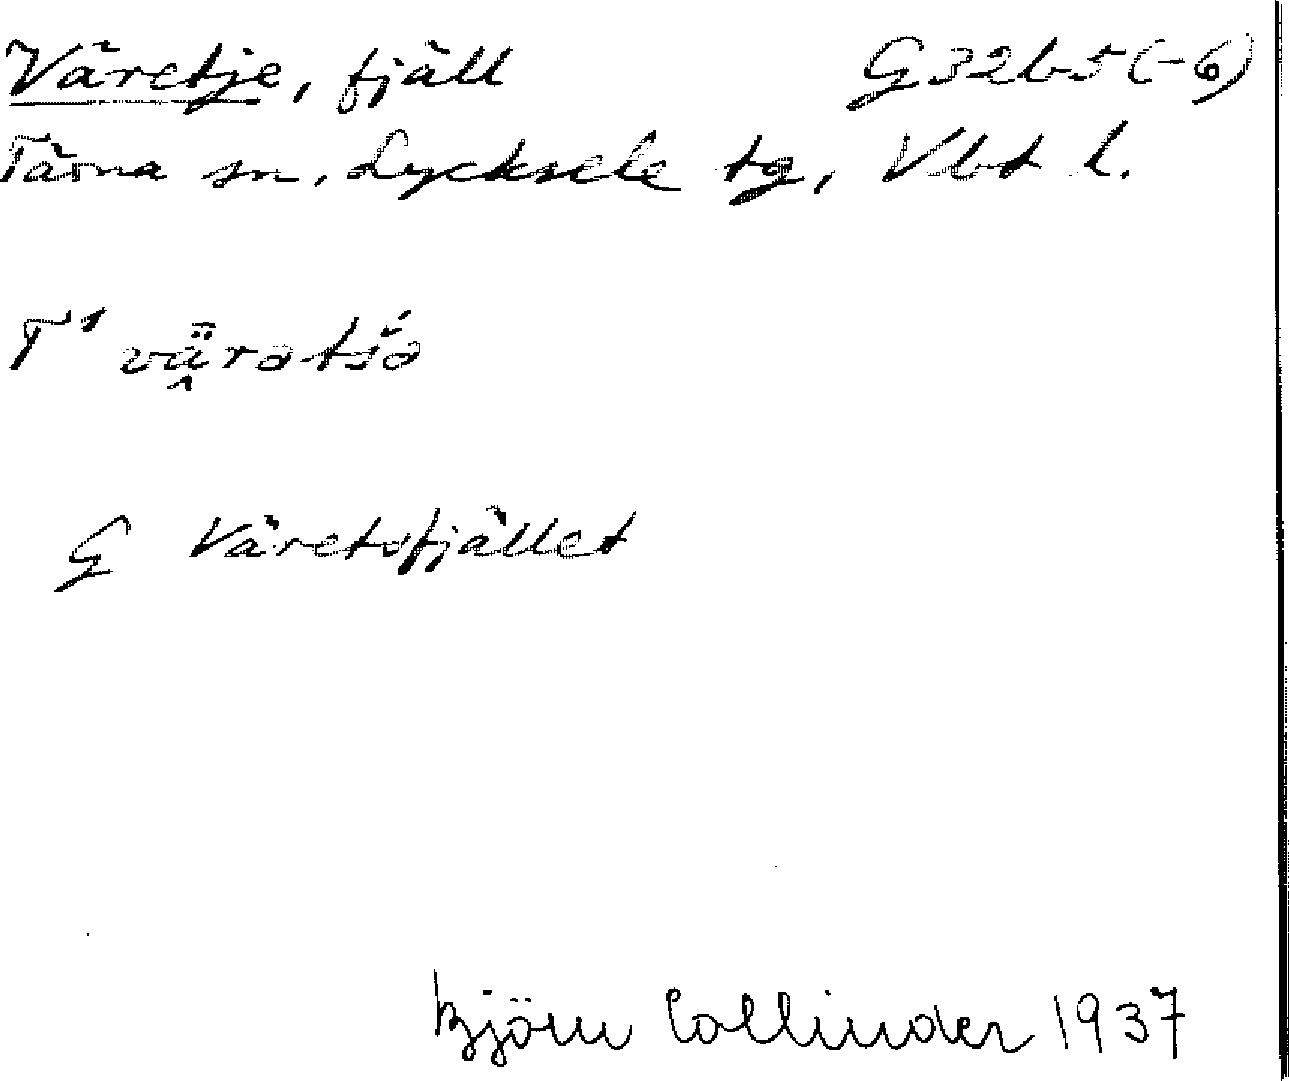 Väretje, fjäll G32b5(-6)
Tärna sn. Lycksele tg, Vbt l.
T¹ vǟ̭rətśə
G Väretsfjället
Björn Collinder 1937